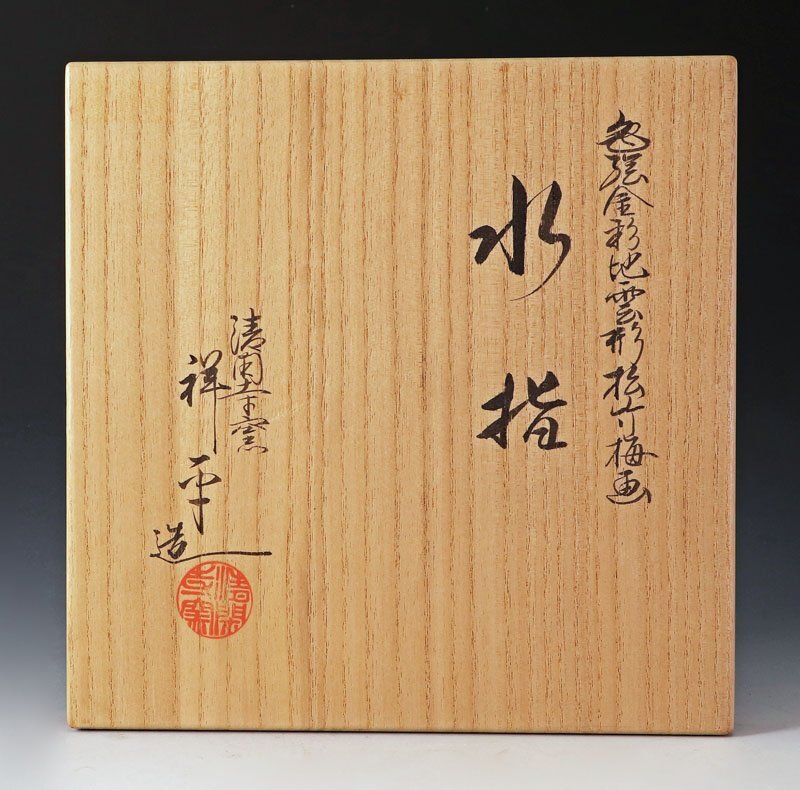 色絵金彩地雲形松竹梅画
水指
清閑寺窯
祥平造
清閑寺窯